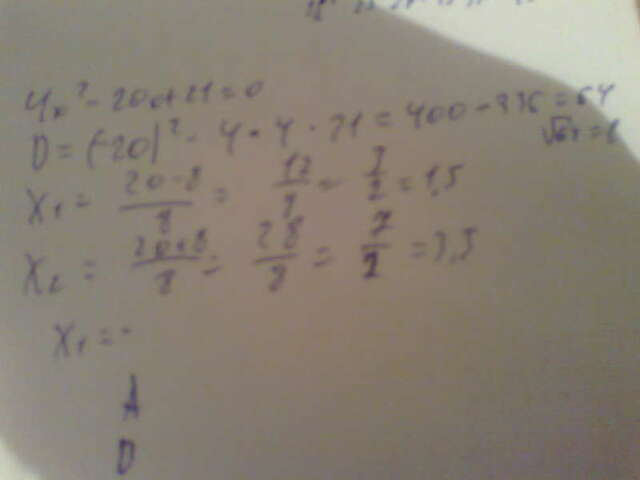 4x² - 20x + 21 = 0
D = (-20)² - 4 · 4 · 21 = 400 - 336 = 64
√64 = 8
X₁ = (20-8)/8 = 12/8 = 3/2 = 1,5
X₂ = (20+8)/8 = 28/8 = 7/2 = 3,5
X₁ = -
A
D